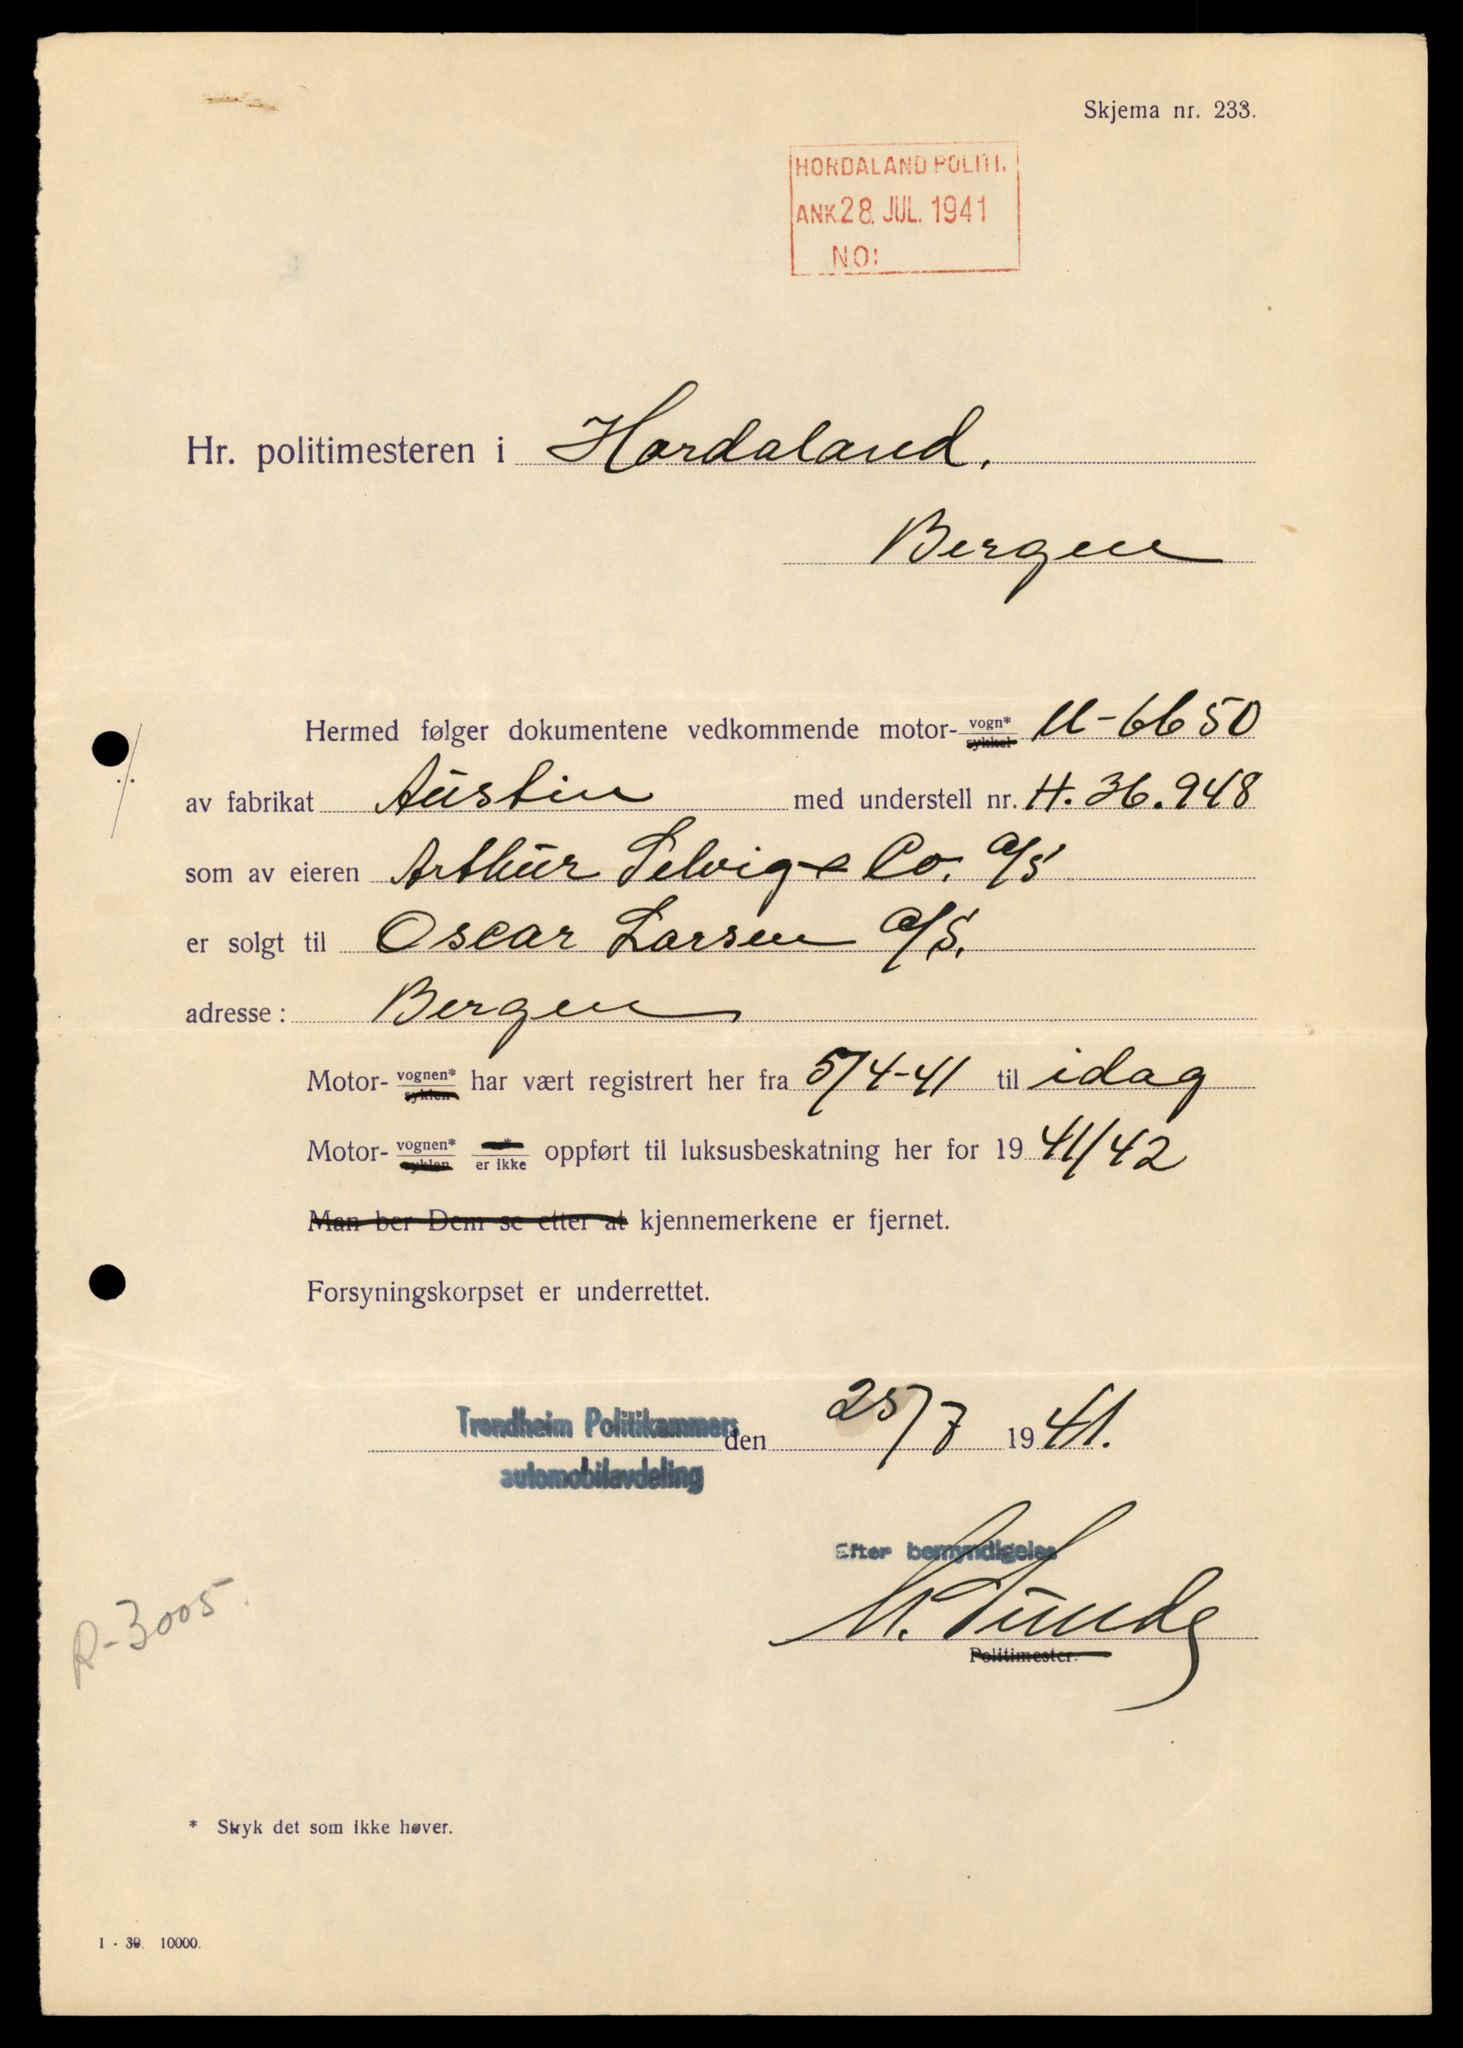 Skjema nr. 233.
HORDALAND POLITI.
ANK. 28. JUL. 1941
NO:
Hr. politimesteren i Hordaland.
Bergen
Hermed følger dokumentene vedkommende motor- vogn* sykkel U-6650
av fabrikat Austin med understell nr. H. 36.948
som av eieren Arthur Selvig & Co. A/S
er solgt til Oscar Larsen A/S.
adresse: Bergen
Motor- vognen* syklen har vært registrert her fra 5/4-41 til idag
Motor- vognen* syklen er ikke oppført til luksusbeskatning her for 1941/42
Man ber Dem se etter at kjennemerkene er fjernet.
Forsyningskorpset er underrettet.
Trondheim Politikammers den 25/7 1941.
automobilavdeling
Efter bemyndigelse
Politimester.
R-3005.
* Stryk det som ikke høver.
1 - 39. 10000.